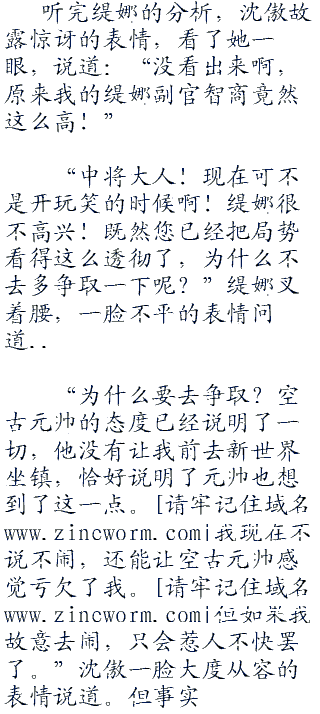 听完缇娜的分析，沈傲故
露惊讶的表情，看了她一
眼，说道：“没看出来啊，
原来我的缇娜副官智商竟然
这么高！”
“中将大人！现在可不
是开玩笑的时候啊！缇娜很
不高兴！既然您已经把局势
看得这么透彻了，为什么不
去多争取一下呢？”缇娜叉
着腰，一脸不平的表情问
道..
“为什么要去争取？空
古元帅的态度已经说明了一
切，他没有让我前去新世界
坐镇，恰好说明了元帅也想
到了这一点。[请牢记住域名
www.zincworm.com|我现在不
说不闹，还能让空古元帅感
觉亏欠了我。[请牢记住域名
www.zincworm.com|但如果我
故意去闹，只会惹人不快罢
了。”沈傲一脸大度从容的
表情说道。但事实